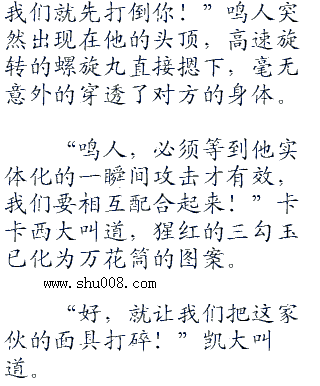 我们就先打倒你！”鸣人突
然出现在他的头顶，高速旋
转的螺旋丸直接摁下，毫无
意外的穿透了对方的身体。
“鸣人，必须等到他实
体化的一瞬间攻击才有效，
我们要相互配合起来！”卡
卡西大叫道，猩红的三勾玉
已化为万花筒的图案。
www.shu008.com
“好，就让我们把这家
伙的面具打碎！”凯大叫
道。